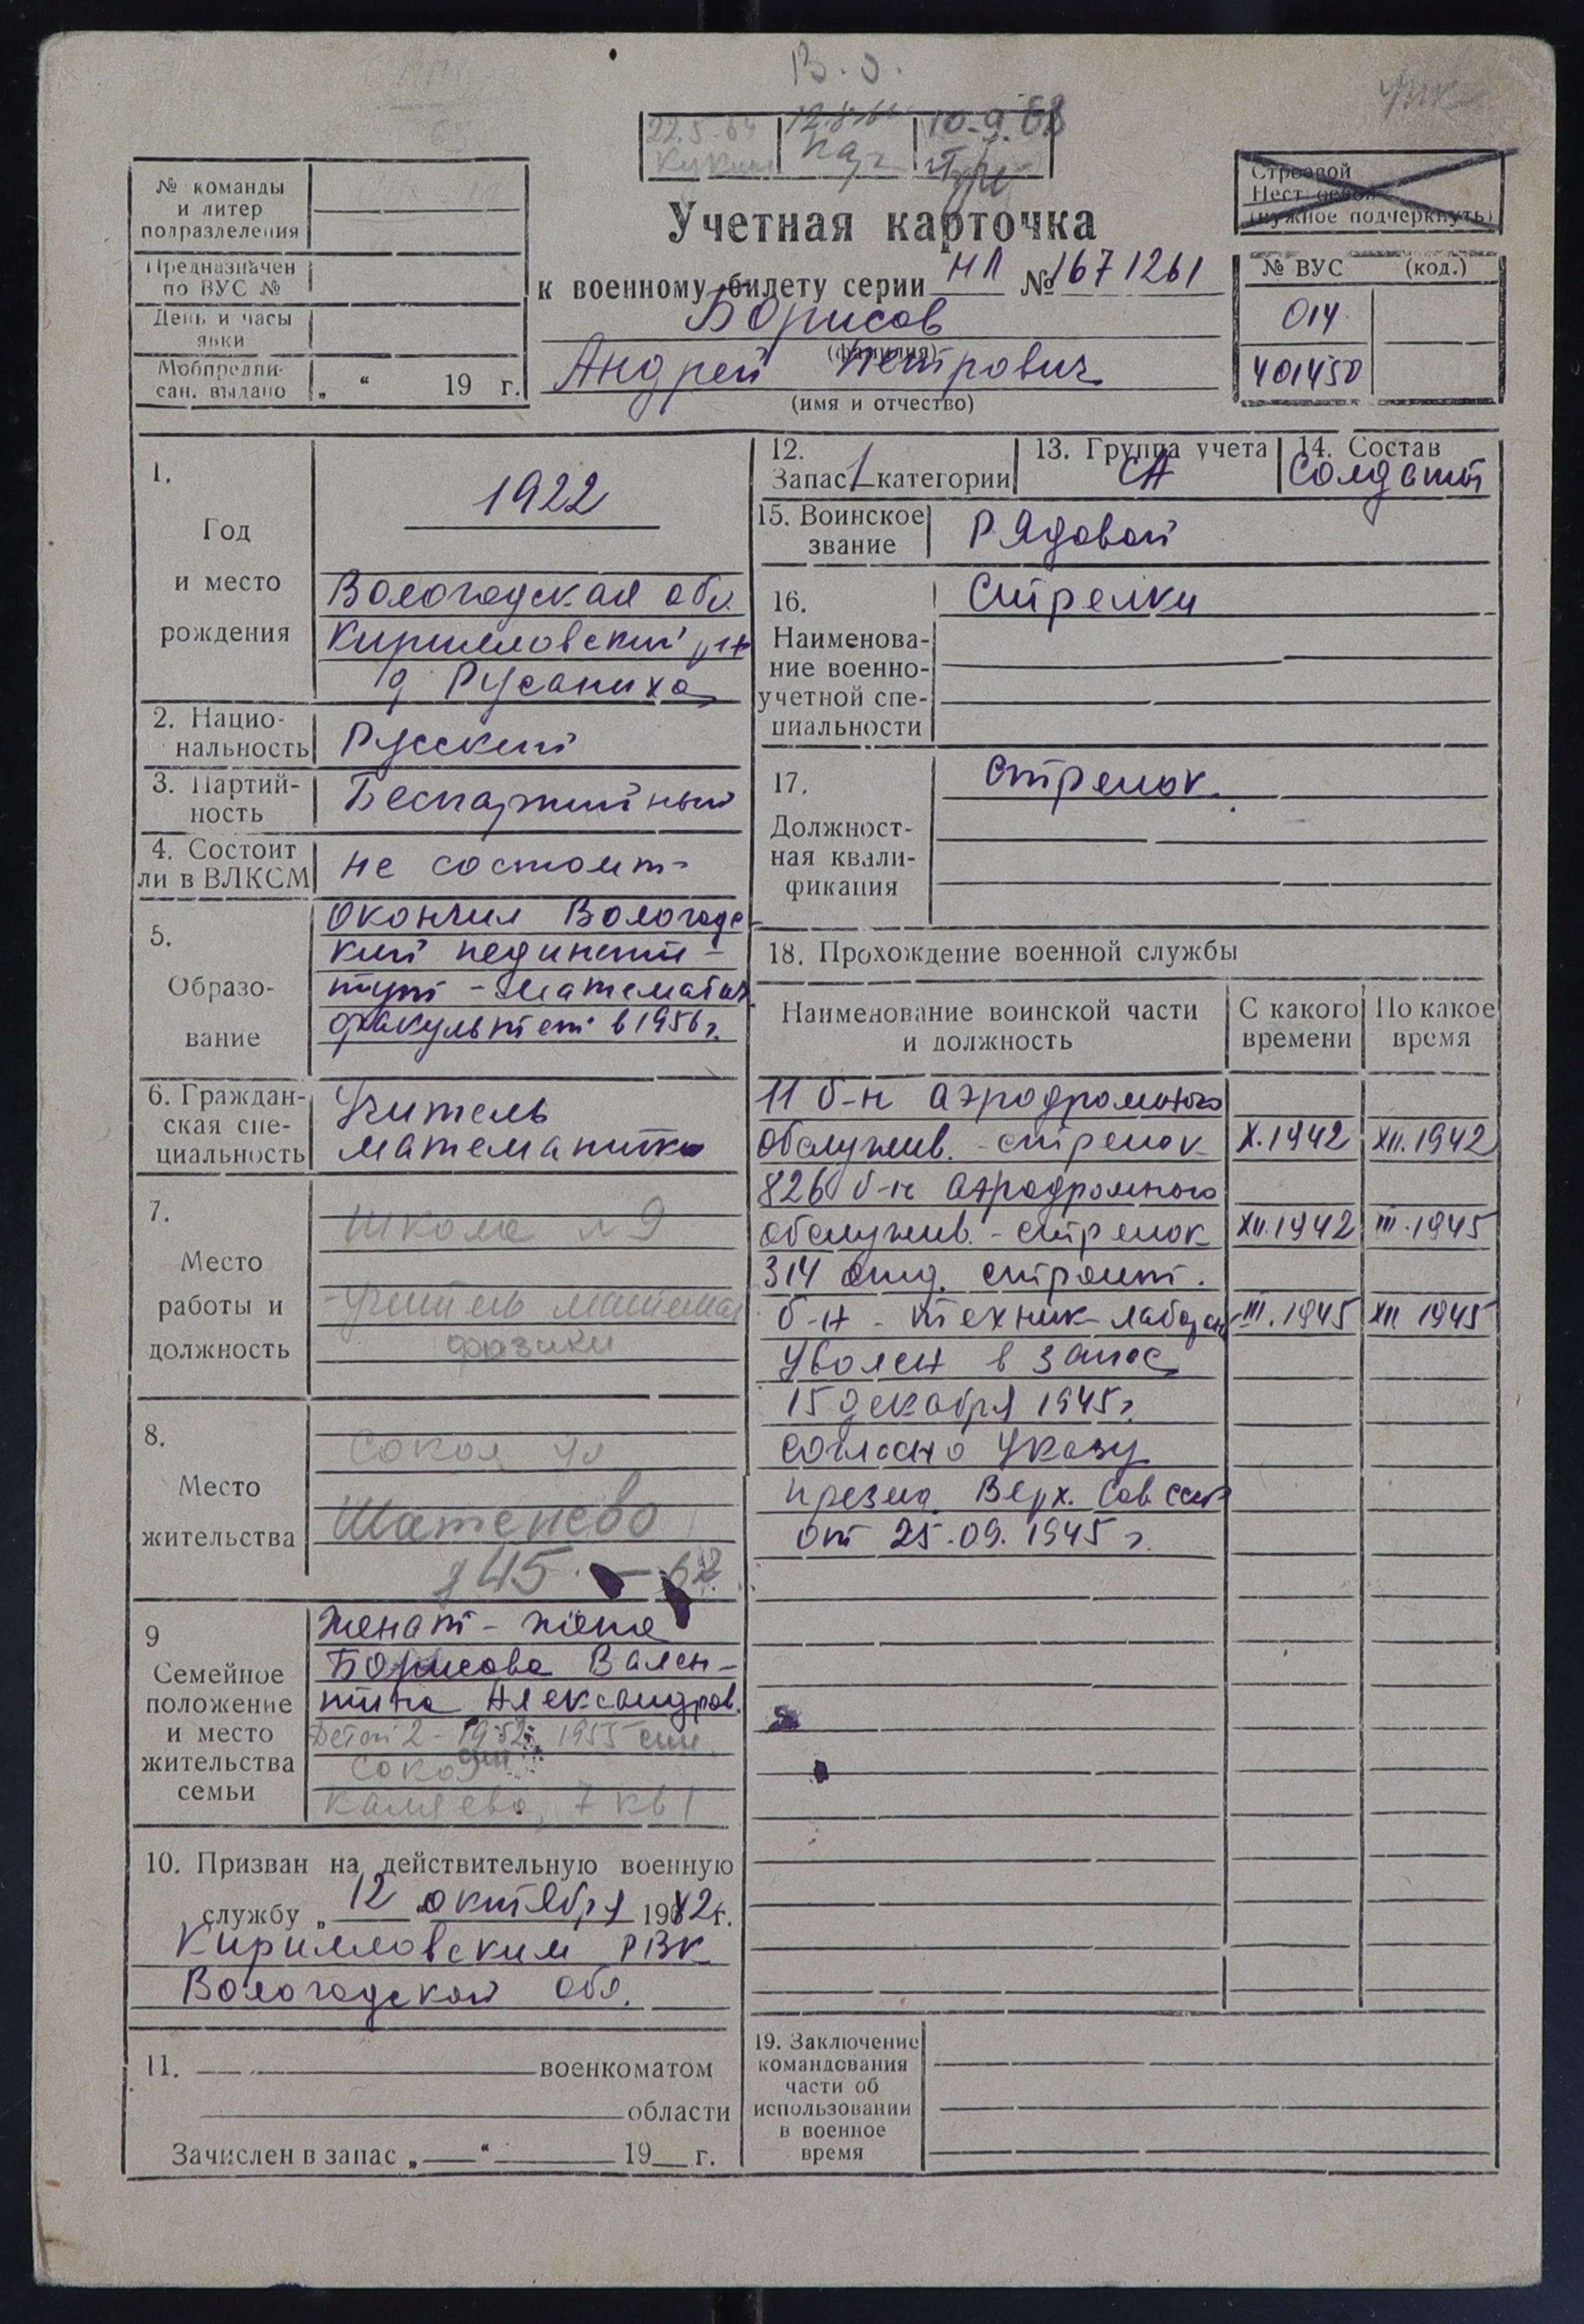 В. О.
10.9.68
№ команды
и литер
подразделения
Предназначен
по ВУС №
День и часы
явки
Мобпредпи-
сан. выдано „ “ 19 г.
Строевой
Нестроевой
(нужное подчеркнуть)
Учетная карточка
к военному билету серии НЛ № 1671261
Борисов
(фамилия)
Андрей Петрович
(имя и отчество)
№ ВУС (код.)
014
401450
1.
Год
и место
рождения
1922
Вологодская обл.
Кирилловский р-н
д Русаниха
2. Нацио-
нальность
Русский
3. Партий-
ность
Беспартийный
4. Состоит
ли в ВЛКСМ
не состоит
5.
Образо-
вание
Окончил Вологодс-
кий пединсти-
тут - математич.
факультет в 1956 г.
6. Граждан-
ская спе-
циальность
Учитель
математики
7.
Место
работы и
должность
Школа № 9
учитель математ
физики
8.
Место
жительства
Сокол ул
Шатенево
д 45 - 62
9
Семейное
положение
и место
жительства
семьи
Женат - жена
Борисова Вален-
тина Александров.
Детей 2 - 1952, 1955 сын
Сокол
Каляева, 7 кв 1
10. Призван на действительную военную
службу „ 12 „ октября 1942 г.
Кирилловским РВК
Вологодской обл.
11. военкоматом
области
Зачислен в запас „ “ 19 г.
12.
Запас 1 категории
13. Группа учета
СА
14. Состав
Солдат
15. Воинское
звание
Рядовой
16.
Наименова-
ние военно-
учетной спе-
циальности
Стрелки
17.
Должност-
ная квали-
фикация
Стрелок.
18. Прохождение военной службы
Наименование воинской части
и должность
С какого
времени
По какое
время
11 б-н аэродромного
обслужив. - стрелок X.1942 XII.1942
826 б-н аэродромного
обслужив. - стрелок XII.1942 III.1945
314 отд. строит.
б-н - техник-лаборан III.1945 XII 1945
Уволен в запас
15 декабря 1945 г.
согласно Указу
презид. Верх. Сов СССР
от 25.09.1945 г.
19. Заключение
командования
части об
использовании
в военное
время